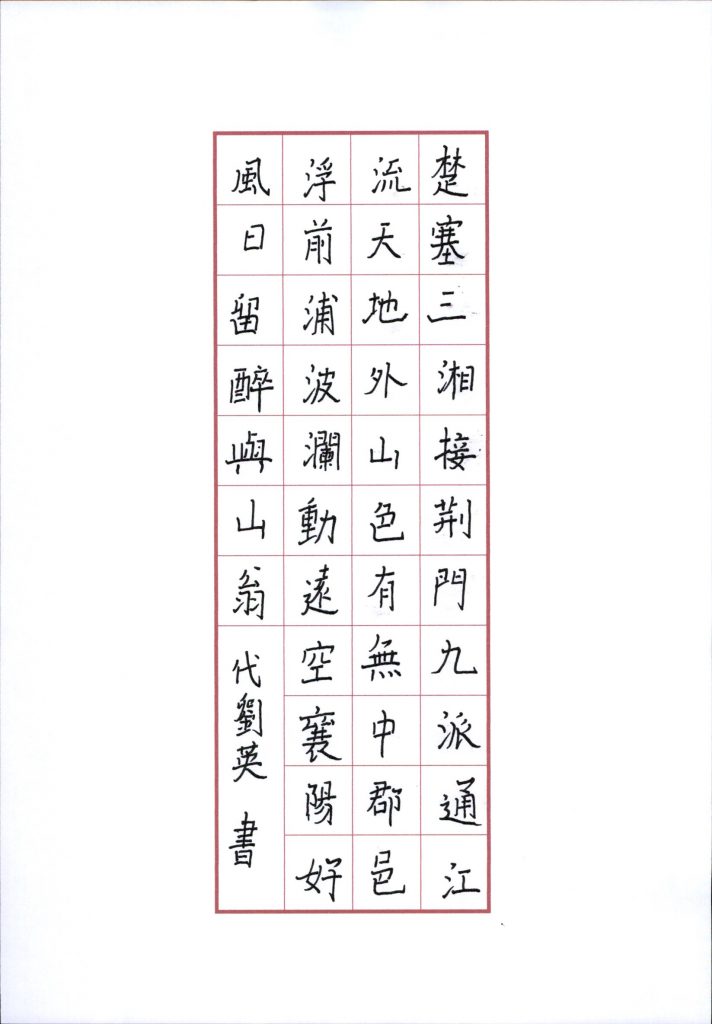 楚塞三湘接荆門九派通江
流天地外山色有無中郡邑
浮前浦波瀾動遠空襄陽好
風日留醉與山翁代劉英 書